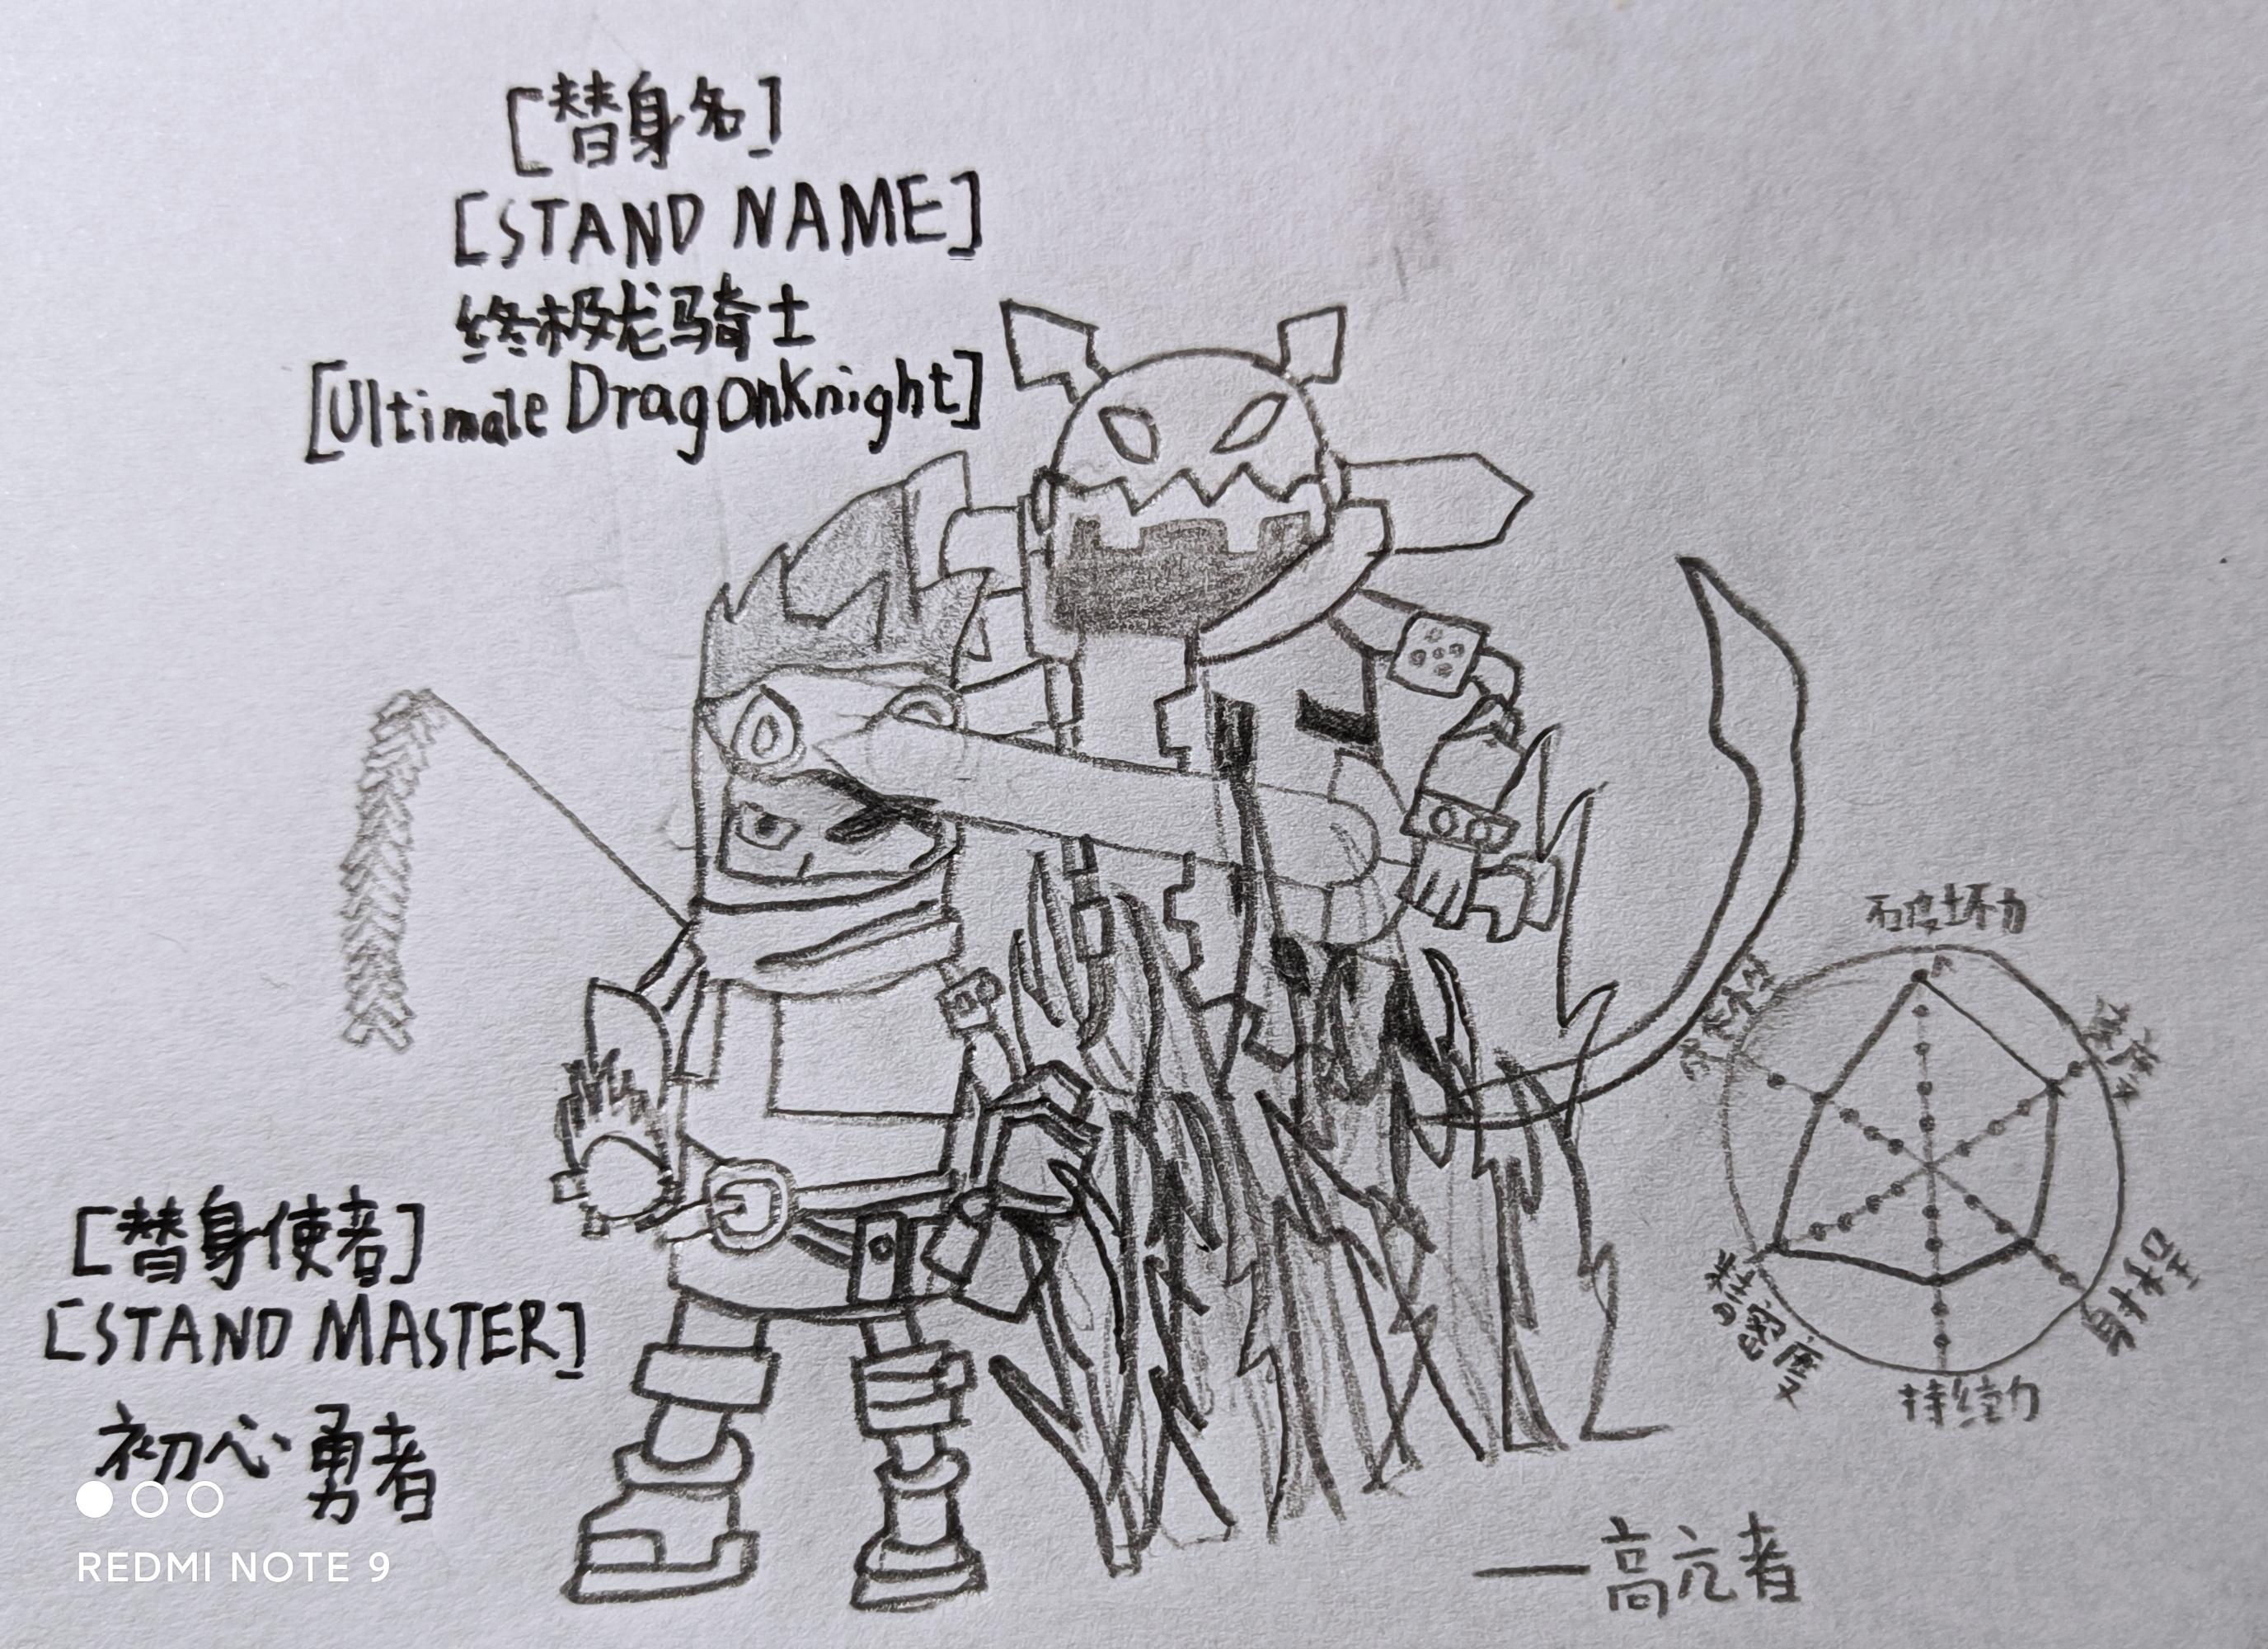 [替身名]
[STAND NAME]
终极龙骑士
[Ultimate DragonKnight]
破坏力
A
速度
持续力
精密度
[替身使者]
[STAND MASTER]
初心·勇者
REDMI NOTE 9
——高亢者